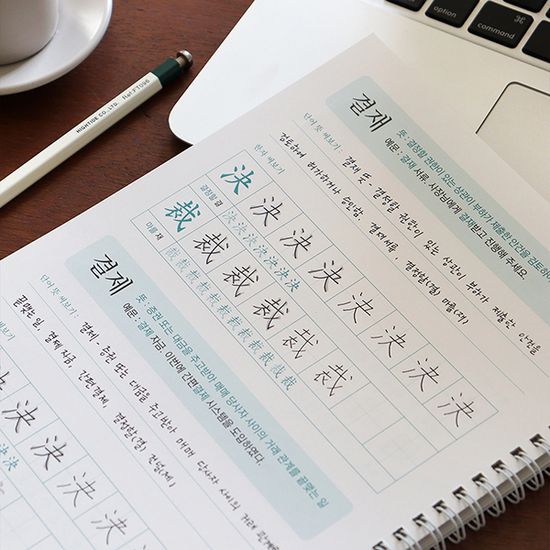 HIGHTIDE CO., LTD. Ref.FT096
command
결재
뜻 : 결정할 권한이 있는 상관이 부하가 제출한 안건을 검토하
예문 : 결재 서류. 사장님에게 결재받고 진행해 주세요.
단어 뜻 써보기
결재 뜻 - 결정할 권한이 있는 상관이 부하가 제출한 안건을
검토하여 허가하거나 승인함. 결재서류, 결정할(결) 마를(재)
한자 써보기
決 決 決 決 決 決 決 決
결정할 결 決 決 決 決 決 決
裁 裁 裁 裁 裁
마를 재 裁 裁 裁 裁 裁 裁 裁 裁
결제
뜻 : 증권 또는 대금을 주고받아 매매 당사자 사이의 거래 관계를 끝맺는 일
예문 : 결제 자금. 이번에 간편결제 시스템을 도입하였다.
단어 뜻 써보기
결제, 증권 또는 대금을 주고받아 매매 당사자 사이의 거래 관계를
끝맺는 일, 결제 자금, 간편결제, 결정할(결)
한자 써보기
決 決 決 決 決
決 決